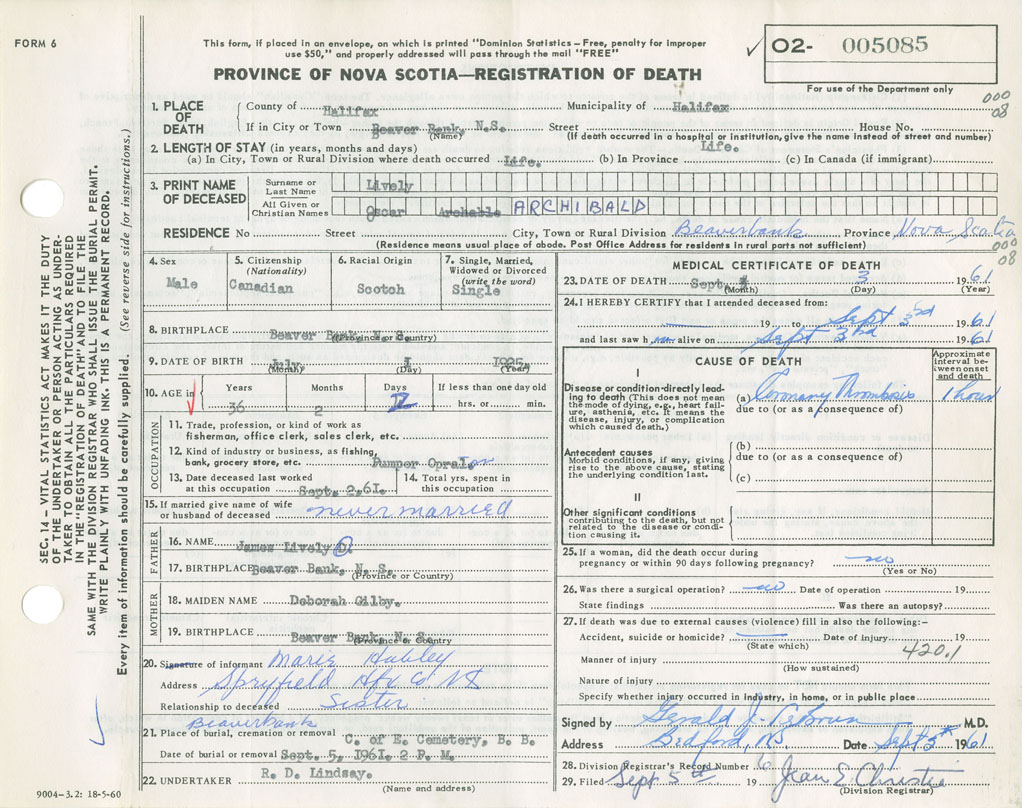 FORM 6
This form, if placed in an envelope, on which is printed "Dominion Statistics – Free, penalty for improper
use $50," and properly addressed will pass through the mail "FREE"
✓ O2- 005085
For use of the Department only
PROVINCE OF NOVA SCOTIA—REGISTRATION OF DEATH
000
08
1. PLACE OF DEATH
County of Halifax Municipality of Halifax
If in City or Town Beaver Bank, N.S. Street House No.
(Name) (If death occurred in a hospital or institution, give the name instead of street and number)
2. LENGTH OF STAY (in years, months and days)
(a) In City, Town or Rural Division where death occurred Life. (b) In Province Life. (c) In Canada (if immigrant)
3. PRINT NAME OF DECEASED
Surname or Last Name Lively
All Given or Christian Names Oscar ARCHIBALD
RESIDENCE No Street City, Town or Rural Division Beaverbank Province Nova Scotia
(Residence means usual place of abode. Post Office Address for residents in rural parts not sufficient)
000
08
4. Sex Male
5. Citizenship (Nationality) Canadian
6. Racial Origin Scotch
7. Single, Married, Widowed or Divorced (write the word) Single
8. BIRTHPLACE Beaver Bank, N. S.
(Province or Country)
9. DATE OF BIRTH July 1 1925
(Month) (Day) (Year)
10. AGE in Years Months Days If less than one day old
36 2 hrs. or min.
OCCUPATION
11. Trade, profession, or kind of work as
fisherman, office clerk, sales clerk, etc.
12. Kind of industry or business, as fishing,
bank, grocery store, etc. Pumper
13. Date deceased last worked
at this occupation Sept. 2, 61.
14. Total yrs. spent in
this occupation
15. If married give name of wife
or husband of deceased never married
FATHER
16. NAME James Lively O.
17. BIRTHPLACE Beaver Bank, N. S.
(Province or Country)
MOTHER
18. MAIDEN NAME Deborah Gilby.
19. BIRTHPLACE Beaver Bank, N. S.
(Province or Country
20. Signature of informant Marie Hubley
Address Spryfield Hfx Co NS
Relationship to deceased Sister
Beaverbank
21. Place of burial, cremation or removal C. of E. Cemetery, B. B.
Date of burial or removal Sept. 5, 1961. 2 P. M.
22. UNDERTAKER R. D. Lindsay.
(Name and address)
9004–3.2: 18-5-60
MEDICAL CERTIFICATE OF DEATH
23. DATE OF DEATH Sept. 3 1961
(Month) (Day) (Year)
24. I HEREBY CERTIFY that I attended deceased from:
19 to Sept 3rd 1961
and last saw h im alive on Sept 3rd 1961
CAUSE OF DEATH
Approximate interval between onset and death
I
Disease or condition directly leading to death (This does not mean the mode of dying, e.g., heart failure, asthenia, etc. It means the disease, injury, or complication which caused death.)
(a) Coronary Thrombosis 1 hour
due to (or as a consequence of)
Antecedent causes
Morbid conditions, if any, giving rise to the above cause, stating the underlying condition last.
(b)
due to (or as a consequence of)
(c)
II
Other significant conditions
contributing to the death, but not related to the disease or condition causing it.
25. If a woman, did the death occur during
pregnancy or within 90 days following pregnancy? no
(Yes or No)
26. Was there a surgical operation? no Date of operation 19
State findings Was there an autopsy?
27. If death was due to external causes (violence) fill in also the following:-
Accident, suicide or homicide? Date of injury 19
(State which)
420.1
Manner of injury
(How sustained)
Nature of injury
Specify whether injury occurred in industry, in home, or in public place
Signed by Gerald J. LeBrun M.D.
Address Bedford, NS Date Sept 5th 1961
28. Division Registrar's Record Number 6
29. Filed Sept 5th 19 Jean E. Christie
(Division Registrar)
SEC. 14 – VITAL STATISTICS ACT MAKES IT THE DUTY
OF THE UNDERTAKER OR PERSON ACTING AS UNDER-
TAKER TO OBTAIN ALL THE PARTICULARS REQUIRED
IN THE "REGISTRATION OF DEATH" AND TO FILE THE
SAME WITH THE DIVISION REGISTRAR WHO SHALL ISSUE THE BURIAL PERMIT.
WRITE PLAINLY WITH UNFADING INK. THIS IS A PERMANENT RECORD.
Every item of information should be carefully supplied. (See reverse side for instructions.)